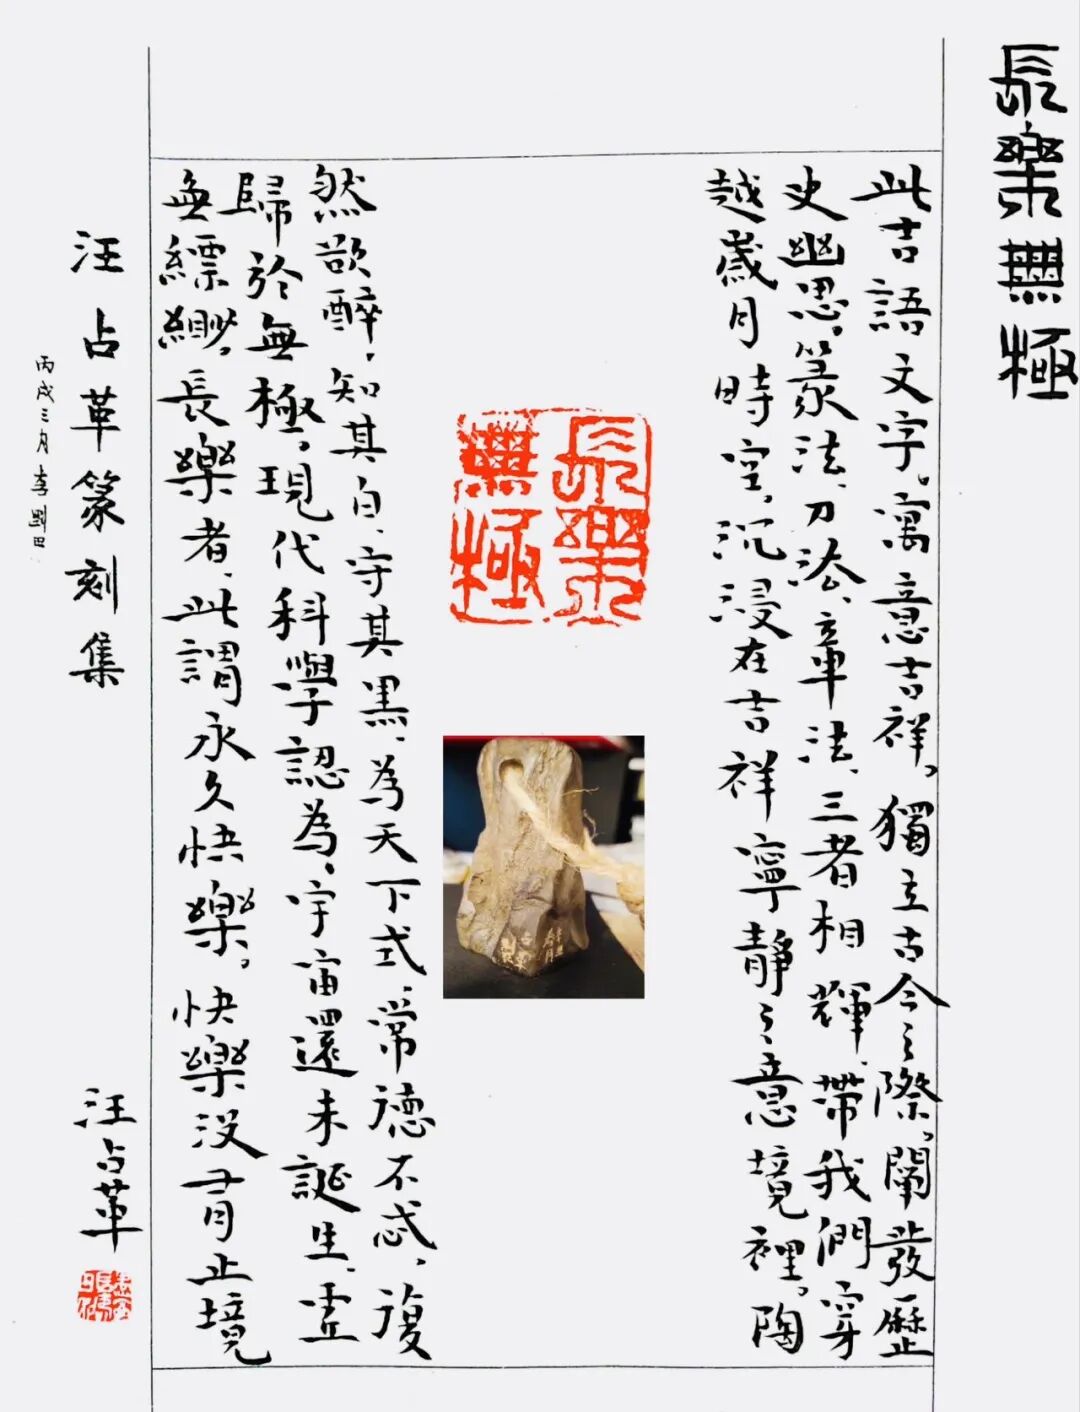 長樂無極
此吉語文字。寓意吉祥。獨立古今之際。闡發歷
史幽思。篆法、刀法、章法、三者相輝、帶我們穿
越歲月時空。沉浸在吉祥寧靜之意境裡。陶
長樂
無極
然欲醉。知其白、守其黑、為天下式、常德不忒。複
歸於無極。現代科學認為。宇宙還未誕生、虛
無縹緲。長樂者、此謂永久快樂。快樂沒有止境
汪占革
汪占革篆刻集
丙戌三月李剛田